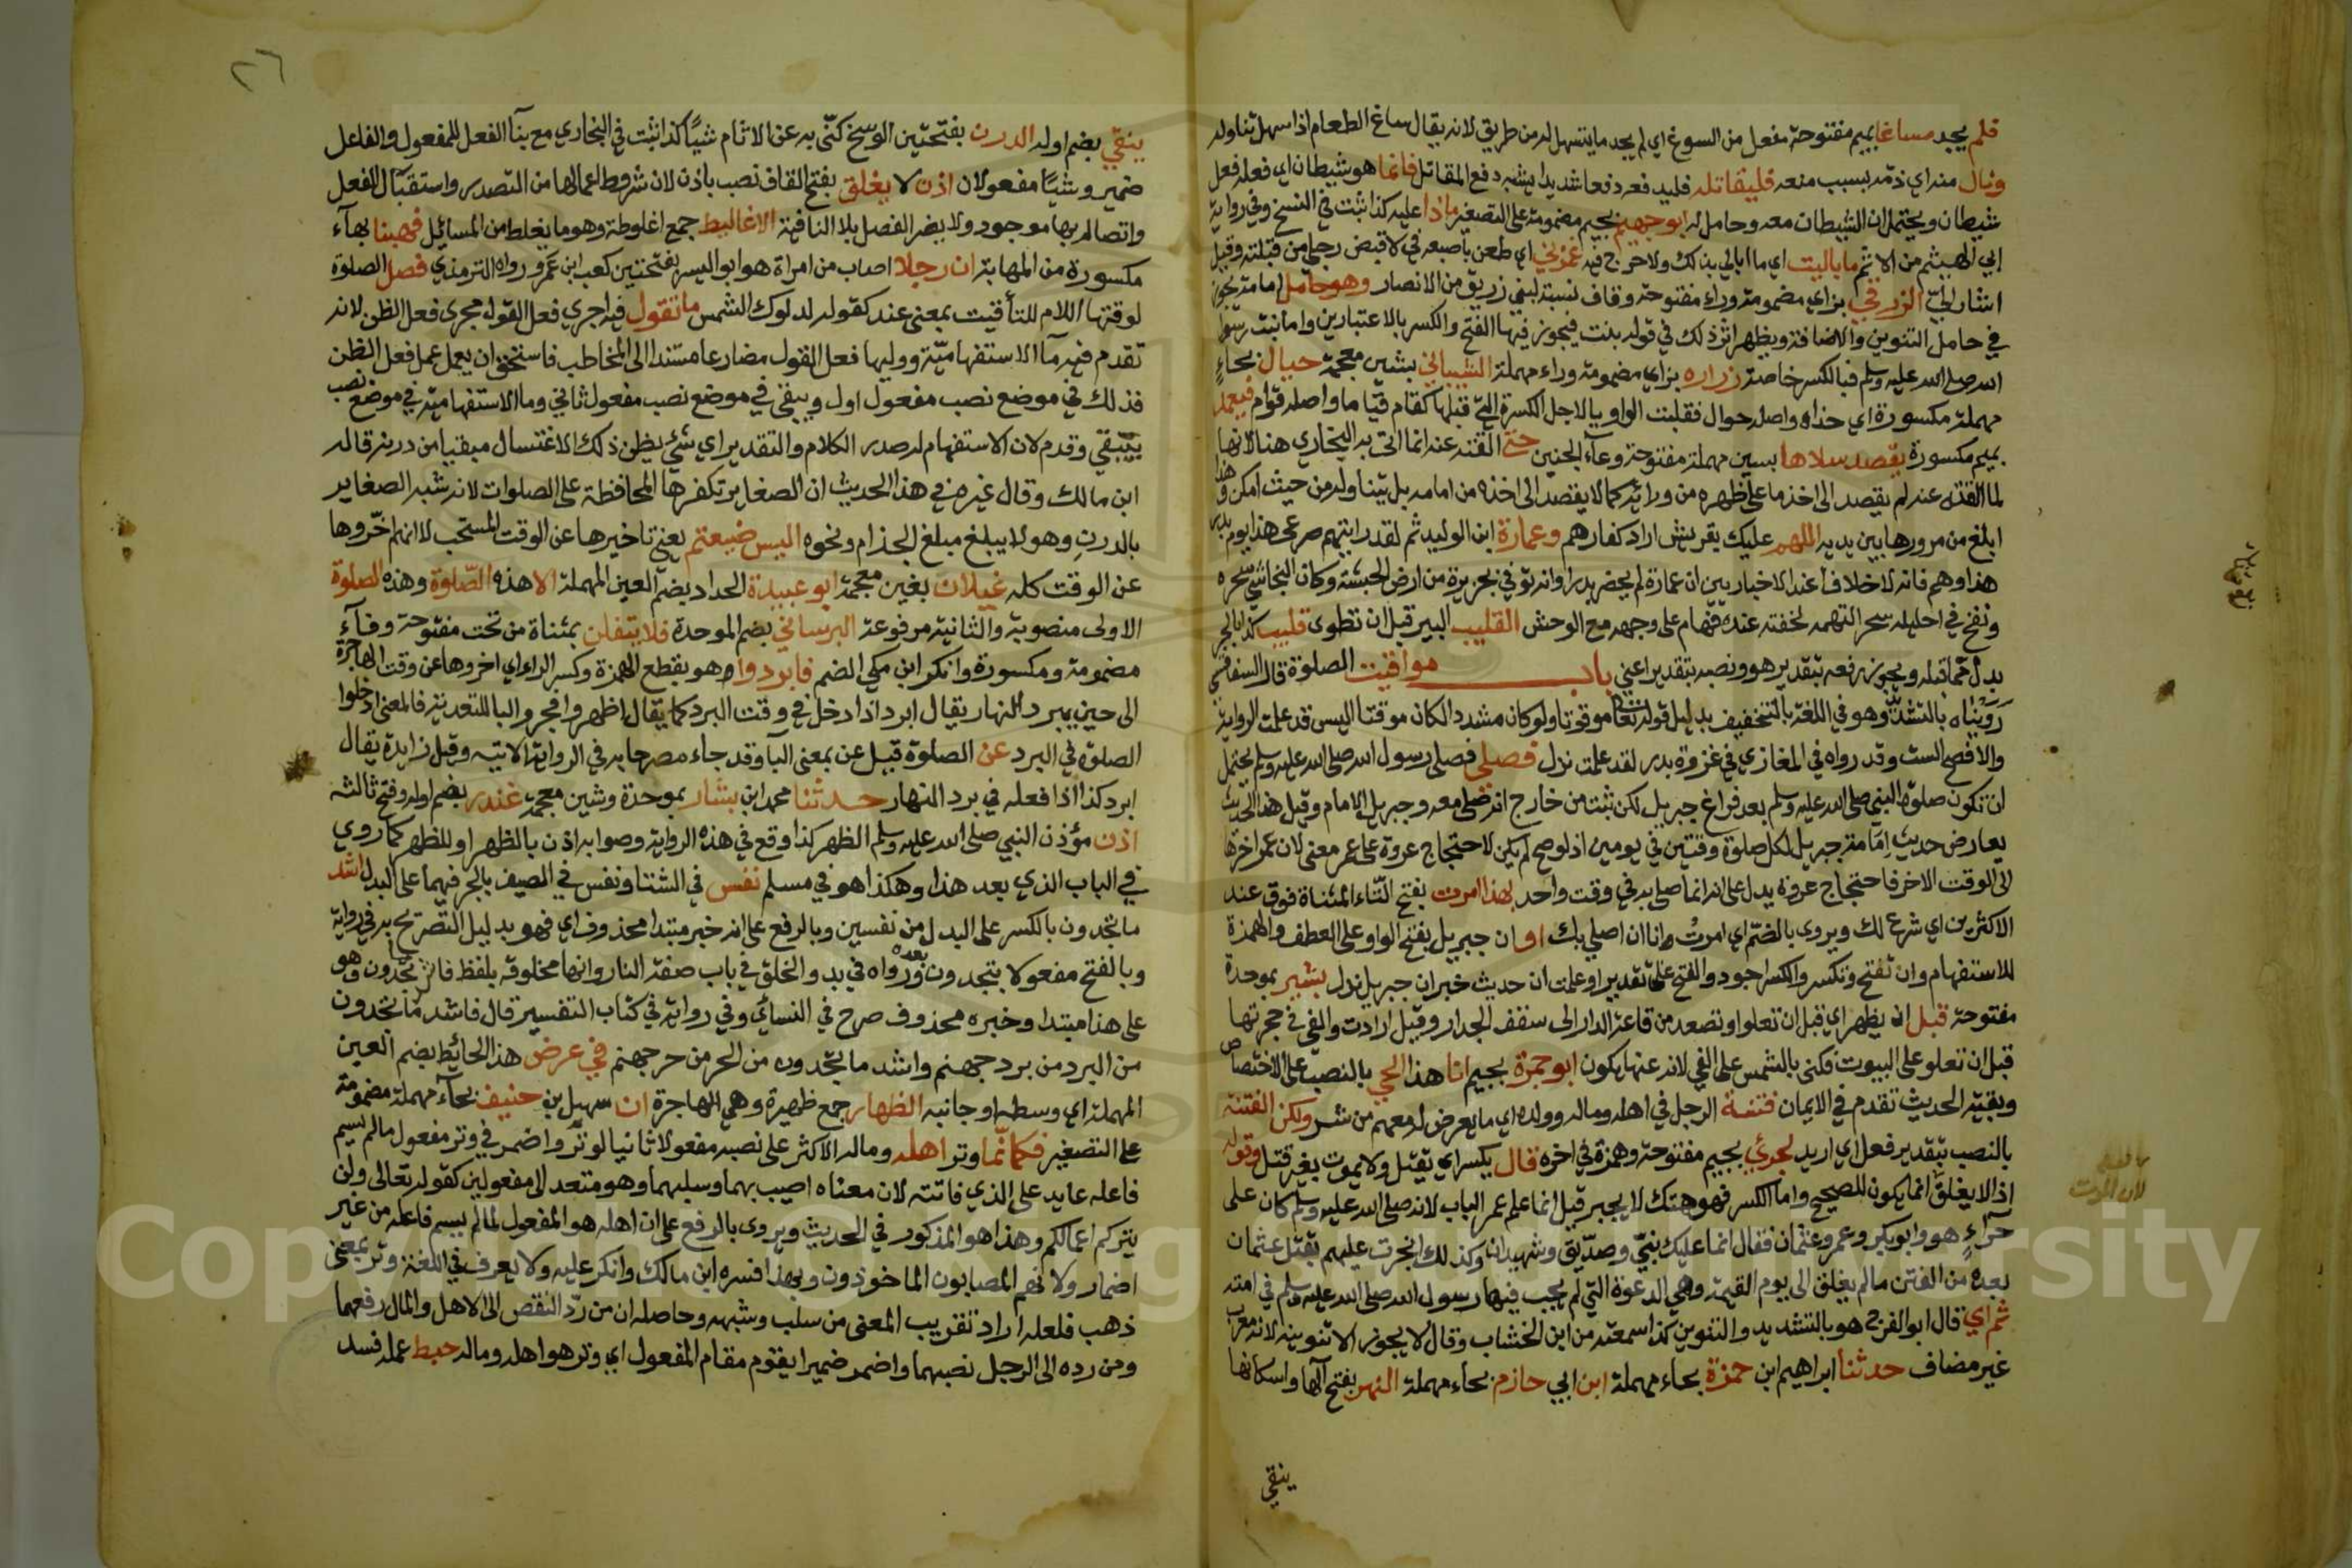 فلم يجد مساغا بميم مفتوحة مفعل من السوغ اي لم يجد ما يتسهل له من طريق لانه يقال ساغ الطعام اذا سهل تناوله
ونال منه اي ذمه بسبب منعه فليقاتله فليدفعه دفعا شديدا يشبه دفع المقاتل فانما هو شيطان اي فعله فعل
شيطان ويحتمل ان الشيطان معه وحامل له ابو جهيم بجيم مضمومة على التصغير ماذا عليه كذا ثبت في النسخ وفي رواية
ابي الهيثم من الاثم ما باليت اي ما ابالي بذلك ولا حرج فيه غمزني اي طعن باصبعه في لاقبض رجلي من قبلته وقيل
اشار الي الزرقي بزاي مضمومة وراء مفتوحة وقاف نسبة لبني زريق من الانصار وهو حامل امامة يجوز
في حامل التنوين والاضافة ويظهر اثر ذلك في قوله بنت فيجوز فيها الفتح والكسر بالاعتبارين واما بنت رسول
الله صلى الله عليه وسلم فبالكسر خاصة زراره بزاي مضمومة وراء مهملة الشيباني بشين معجمة حيال بحاء
مهملة مكسورة اي حذاه واصله حوال فقلبت الواو يا لاجل الكسرة التي قبلها كقام قياما واصله قوام فيعمد
بميم مكسورة يقصد سلاها بسين مهملة مفتوحة وعاء الجنين حتى القته عنه انما اتى به البخاري هنا لانها
لما القته عنه لم يقصد الى اخذ ما على ظهره من ورائه كما لا يقصد الى اخذه من امامه بل يتناوله من حيث امكن وهذا
ابلغ من مرورها بين يديه اللهم عليك بقريش اراد كفارهم وعمارة ابن الوليد ثم لقد رايتهم صرعى هذا يوم بدر
هذا وهم فانه لا خلاف عند الاخباريين ان عمارة لم يحضر بدرا وانه توفي بجزيرة من ارض الحبشة وكان النجاشي سحره
ونفخ في احليله سحرا لتهمة لحقته عنده فهام على وجهه مع الوحش القليب البير قبل ان تطوى قليب كذا بالجر
بدل مما قبله ويجوز رفعه بتقدير هو ونصبه بتقدير اعني باب مواقيت الصلوة قال السفاقسي
رَوَيْنَاه بالتشديد وهو في اللغة بالتخفيف بدليل قوله تعالى موقوتا ولو كان مشددا لكان موقتا اليس قد علمت الرواية
والافصح الست وقد رواه في المغازي في غزوة بدر لقد علمت نزل فصلى فصلى رسول الله صلى الله عليه وسلم يحتمل
ان تكون صلوة النبي صلى الله عليه وسلم بعد فراغ جبريل لكن ثبت من خارج انه صلى معه وجبريل الامام وقيل هذا الحديث
يعارض حديث امامة جبريل لكل صلوة وقتين في يومين اذ لو صح لم يكن لاحتجاج عروة على عمر معنى لان عمر اخرها
الى الوقت الاخر فاحتجاج عروة يدل على انه انما صلى به في وقت واحد بهذا امرت بفتح التاء المثناة فوق عند
الاكثرين اي شرع لك ويروى بالضم اي امرتُ وانا ان اصلي بك او ان جبريل بفتح الواو على العطف والهمزة
للاستفهام وان تفتح وتكسر والكسر اجود والفتح على تقدير او علمت ان حديث خبر ان جبريل نزل بشير بموحدة
مفتوحة قبل ان يظهر اي قبل ان تعلو او تصعد من قاعة الدار الى سقف الجدار وقيل ارادت والفي في حجرتها
قبل ان تعلو على البيوت فكنى بالشمس على الفي لانه عنها يكون ابو جمرة بجيم انا هذا الحي بالنصب على الاختصاص
وبقية الحديث تقدم في الايمان فتنة الرجل في اهله وماله وولده اي ما يعرض له معهم من شر ولكن الفتنة
بالنصب بتقدير فعل اي اريد لجرئ بجيم مفتوحة وهمزة في اخره قال يكسر اي يقتل ولا يموت بغير قتل وقوله
اذا لا يغلق انما يكون للصحيح واما الكسر فهو هتك لا يجبر قيل انما علم عمر الباب لانه صلى الله عليه وسلم كان على
حراءٍ هو وابو بكر وعمر وعثمان فقال انما عليك نبي وصديق وشهيدان وكذلك انجرت عليهم بقتل عثمان
بعده من الفتن ما لم يغلق الى يوم القيمة وهي الدعوة التي لم يجب فيها رسول الله صلى الله عليه وسلم في امته
ثم اي قال ابو الفرج هو بالتشديد والتنوين كذا سمعته من ابن الخشاب وقال لا يجوز الا تنوينه لانه معرب
غير مضاف حدثنا ابراهيم ابن حمزة بحاء مهملة ابن ابي حازم بحاء مهملة النهر بفتح الها واسكانها
ينقي
بالقتل
لان الموت
٢٦
ينقي بضم اوله الدرن بفتحتين الوسخ كنّى به عن الاثام شيئًا كذا ثبت في البخاري مع بناء الفعل للمفعول والفاعل
ضمير وشيئًا مفعولان اذن لا يغلق بفتح القاف نصب باذن لان شروط اعمالها من التصدر واستقبال الفعل
واتصاله بها موجود ولا يضر الفصل بلا النافية الاغاليط جمع اغلوطة وهو ما يغلط من المسائل فهبنا بهاء
مكسورة من المهابة ان رجلا اصاب من امراة هو ابو اليسر بفتحتين كعب ابن عمرو رواه الترمذي فصل الصلوة
لوقتها اللام للتأقيت بمعنى عند كقوله لدلوك الشمس ما تقول فيه اجري فعل القول مجرى فعل الظن لانه
تقدم فيه ما الاستفهامية ووليها فعل القول مضارعا مسندا الى المخاطب فاستحق ان يعمل عمل فعل الظن
فذلك في موضع نصب مفعول اول ويبقي في موضع نصب مفعول ثاني وما الاستفهامية في موضع نصب
يبقي وقدم لان الاستفهام له صدر الكلام والتقدير اي شئ يظن ذلك الاغتسال مبقيا من درنه قاله
ابن مالك وقال غيره في هذا الحديث ان الصغاير تكفرها المحافظة على الصلوات لانه شبه الصغاير
بالدرن وهو لا يبلغ مبلغ الجذام ونحوه اليس ضيعتم يعني تاخيرها عن الوقت المستحب لا انهم اخّروها
عن الوقت كله غيلان بغين معجمة ابو عبيدة الحداد بضم العين المهملة الا هذه الصّلوة وهذه الصلوة
الاولى منصوبة والثانية مرفوعة البرساني بضم الموحدة فلا يتفلن بمثناة من تحت مفتوحة وفاء
مضمومة ومكسورة وانكر ابن مكي الضم فابردوا هو بقطع الهمزة وكسر الراء اي اخروها عن وقت الهاجرة
الى حين يبرد النهار يقال ابرد اذا دخل في وقت البرد كما يقال اظهر وافجر والبا للتعدية فالمعنى ادخلوا
الصلوة في البرد عن الصلوة قيل عن بمعنى البا وقد جاء مصرحا به في الرواية الاتية وقيل زايدة يقال
ابرد كذا اذا فعله في برد النهار حدثنا محمد ابن بشار بموحدة وشين معجمة غندر بضم اوله وفتح ثالثه
اذن مؤذن النبي صلى الله عليه وسلم الظهر كذا وقع في هذه الرواية وصوابه اذن بالظهر او للظهر كما روي
في الباب الذي بعد هذا وهكذا هو في مسلم نفس في الشتا ونفس في الصيف بالجر فيهما على البدل اشد
ما تجدون بالكسر على البدل من نفسين وبالرفع على انه خبر مبتدا محذوف اي فهو بدليل التصريح به في رواية
وبالفتح مفعولا بتجدون بعده ورواه في بدو الخلق في باب صفة النار وانها مخلوقة بلفظ فاشد ما تجدون وهو
على هذا مبتدا وخبره محذوف صرح في النسائي وفي رواية في كتاب التفسير قال فاشد ما تجدون
من البرد من برد جهنم واشد ما تجدون من الحر من حر جهنم في عرض هذا الحائط بضم العين
المهملة اي وسطه او جانبه الظهاير جمع ظهيرة وهي الهاجرة ان سهيل بن حنيف بحاء مهملة مضمومة
على التصغير فكانّما وتر اهله وماله الاكثر على نصبه مفعولا ثانيا لوتر واضمر في وتر مفعول ما لم يسم
فاعله عايد على الذي فاتته لان معناه اصيب بهما وسلبهما وهو متعد الى مفعولين كقوله تعالى ولن
يتركم اعمالكم وهذا هو المذكور في الحديث ويروى بالرفع على ان اهله هو المفعول لما لم يسم فاعله من غير
اضمار ولانهم المصابون الماخوذون وبهذا فسره ابن مالك وانكر عليه ولا يعرف في اللغة وتر بمعنى
ذهب فلعله اراد تقريب المعنى من سلب وشبهه وحاصله ان من ردّ النقص الى الاهل والمال رفعهما
ومن رده الى الرجل نصبهما واضمر ضميرا يقوم مقام المفعول اي وتر هو اهله وماله حبط عمله فسد